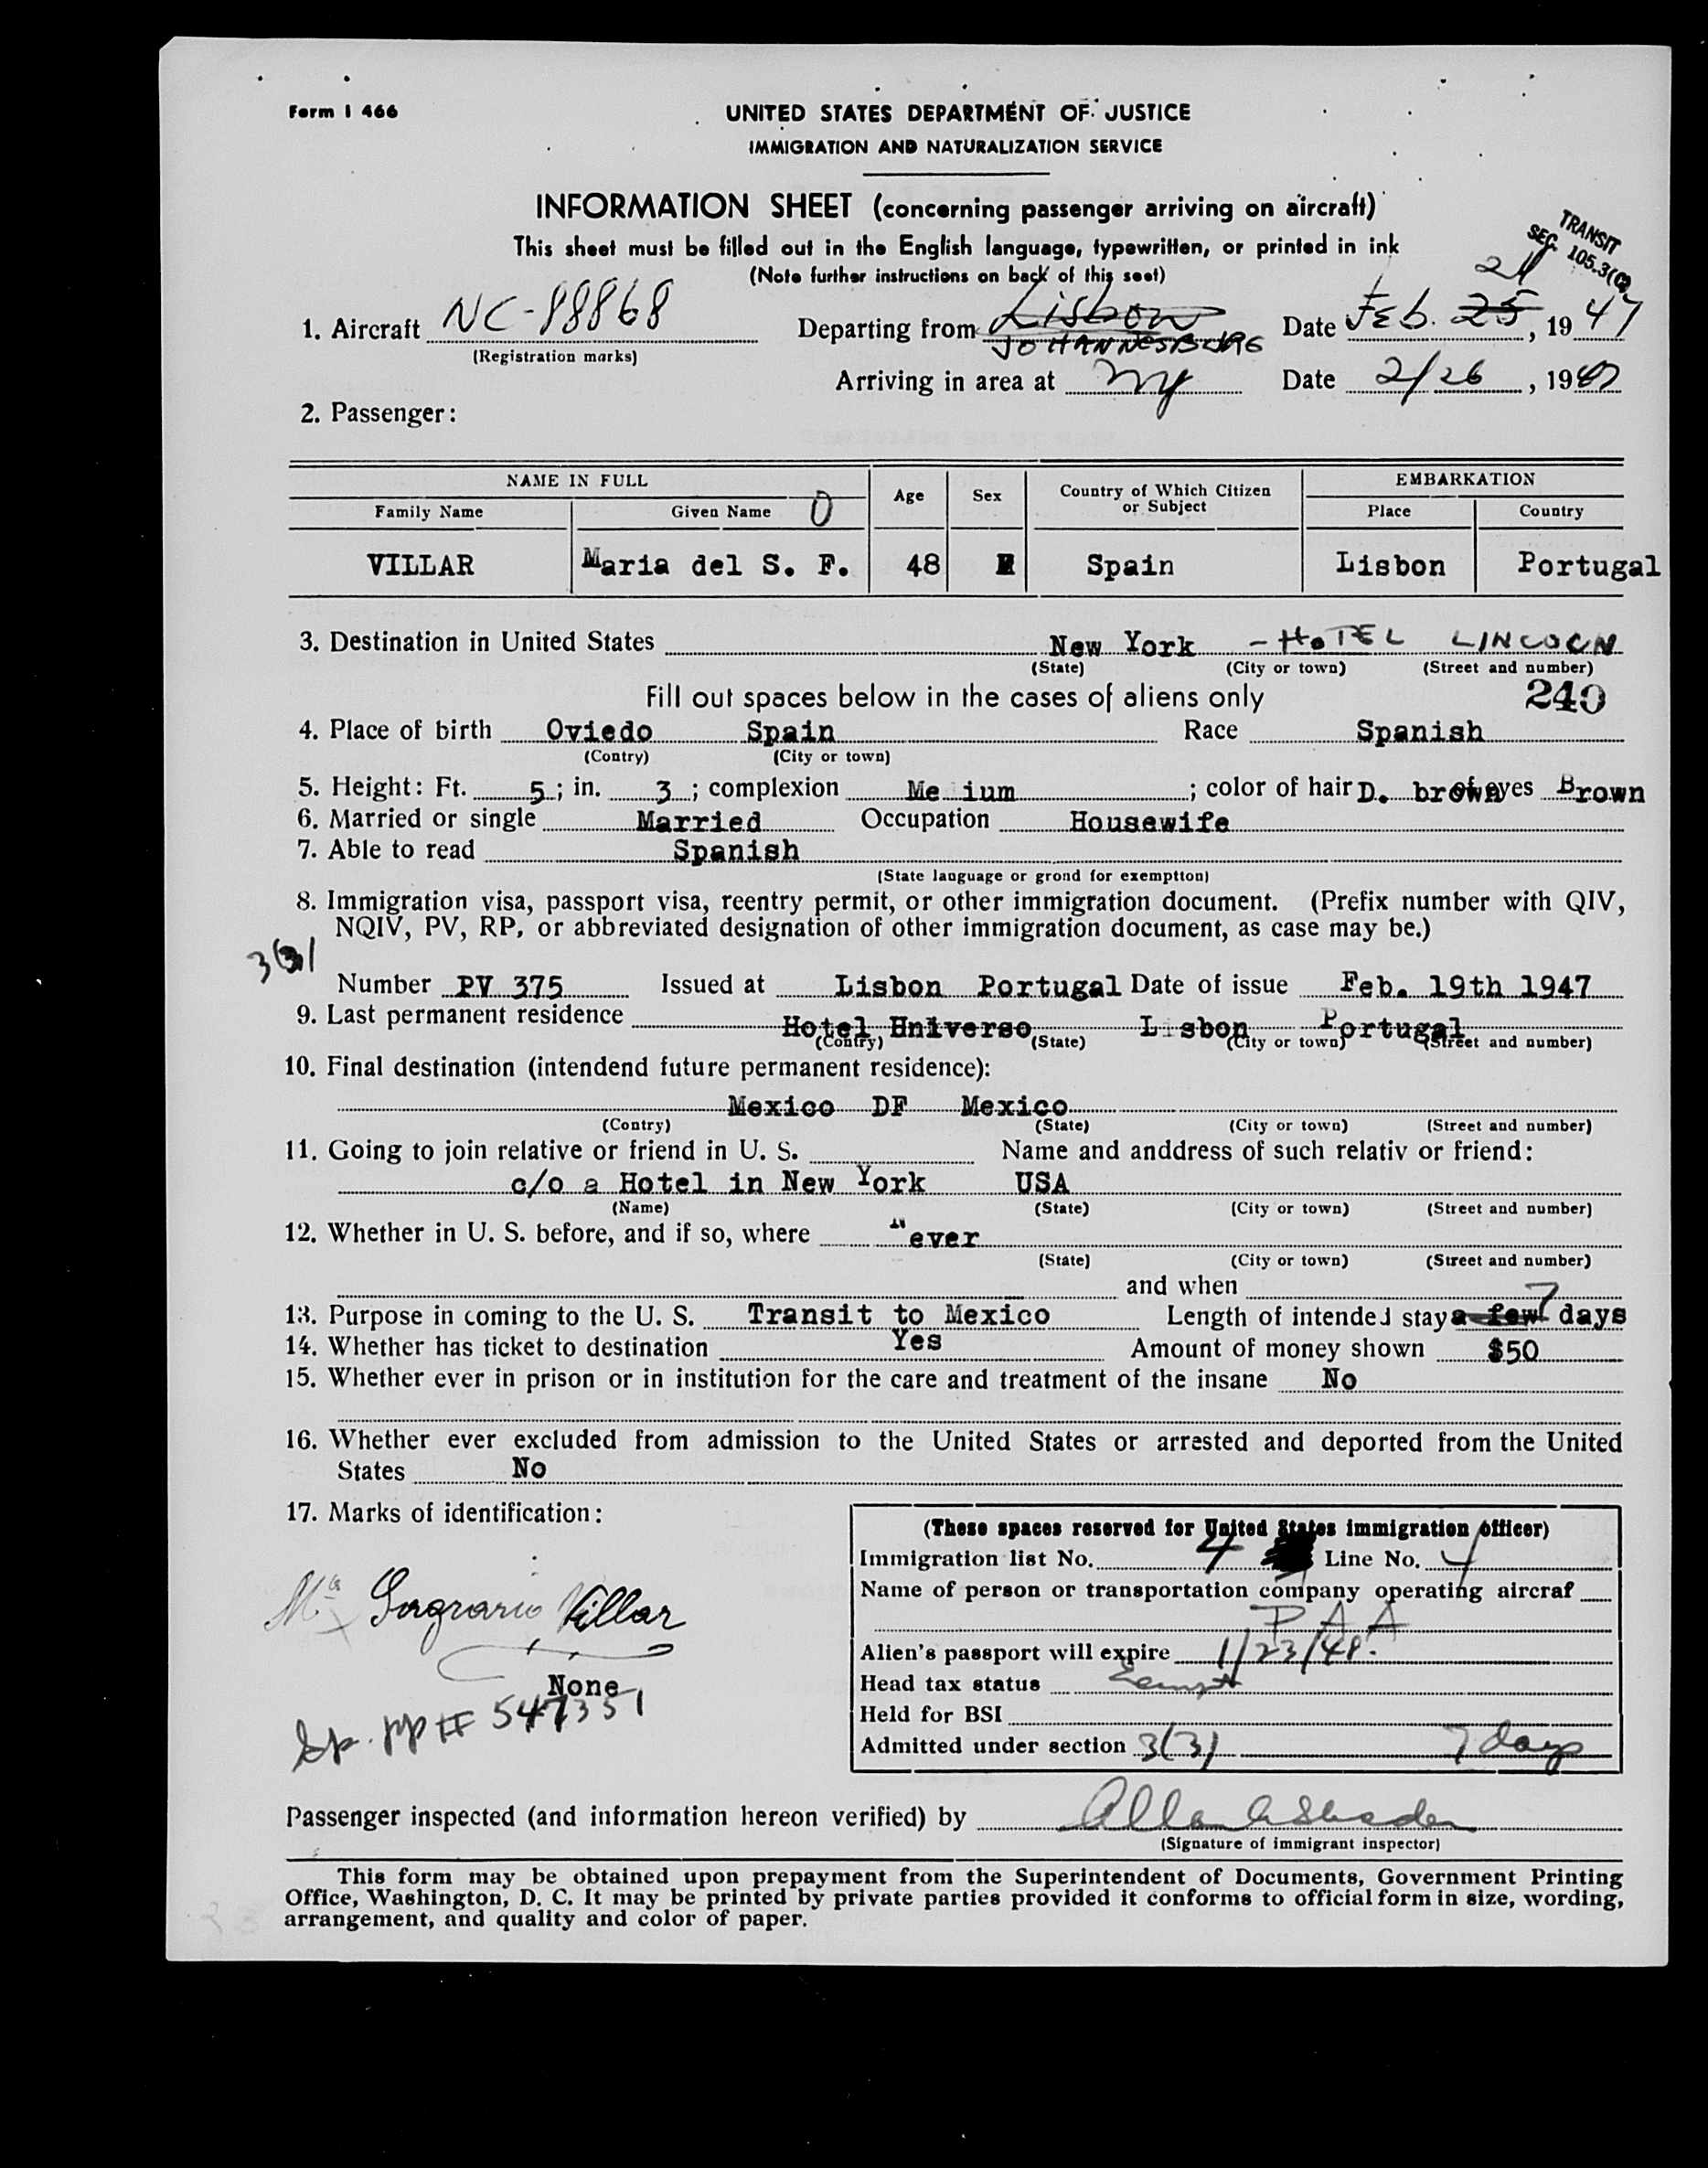 Form I 466
UNITED STATES DEPARTMENT OF JUSTICE
IMMIGRATION AND NATURALIZATION SERVICE
INFORMATION SHEET (concerning passenger arriving on aircraft)
This sheet must be filled out in the English language, typewritten, or printed in ink
(Note further instructions on back of this seet)
TRANSIT
SEC. 105.3(
1. Aircraft NC-88868 Departing from Lisbon Date Feb. 25, 1947
(Registration marks) JOHANNESBURG
Arriving in area at NY Date 2/26, 1947
2. Passenger:
NAME IN FULL Age Sex Country of Which Citizen or Subject EMBARKATION
Family Name Given Name Place Country
VILLAR Maria del S. F. 48 Spain Lisbon Portugal
3. Destination in United States New York - HOTEL LINCOLN
(State) (City or town) (Street and number)
Fill out spaces below in the cases of aliens only 240
4. Place of birth Oviedo Spain Race Spanish
(Contry) (City or town)
5. Height: Ft. 5; in. 3; complexion Me ium; color of hair D. brown eyes Brown
6. Married or single Married Occupation Housewife
7. Able to read Spanish
(State language or grond for exemption)
8. Immigration visa, passport visa, reentry permit, or other immigration document. (Prefix number with QIV,
NQIV, PV, RP, or abbreviated designation of other immigration document, as case may be.)
3(3)
Number PV 375 Issued at Lisbon Portugal Date of issue Feb. 19th 1947
9. Last permanent residence Hotel Hniverso Lisbon Portugal
(Contry) (State) (City or town) (Street and number)
10. Final destination (intendend future permanent residence):
Mexico DF Mexico
(Contry) (State) (City or town) (Street and number)
11. Going to join relative or friend in U. S. Name and anddress of such relativ or friend:
c/o a Hotel in New York USA
(Name) (State) (City or town) (Street and number)
12. Whether in U. S. before, and if so, where Never
(State) (City or town) (Street and number)
and when
13. Purpose in coming to the U. S. Transit to Mexico Length of intended stay a few 7 days
14. Whether has ticket to destination Yes Amount of money shown $50
15. Whether ever in prison or in institution for the care and treatment of the insane No
16. Whether ever excluded from admission to the United States or arrested and deported from the United
States No
17. Marks of identification:
Mª Sagrario Villar
None
Sp. pp # 547351
(These spaces reserved for United States immigration officer)
Immigration list No. 4 Line No. 4
Name of person or transportation company operating aircraf
P A A
Alien's passport will expire 1/23/48.
Head tax status Exempt
Held for BSI
Admitted under section 3(3) 7 days
Passenger inspected (and information hereon verified) by
(Signature of immigrant inspector)
This form may be obtained upon prepayment from the Superintendent of Documents, Government Printing
Office, Washington, D. C. It may be printed by private parties provided it conforms to official form in size, wording,
arrangement, and quality and color of paper.